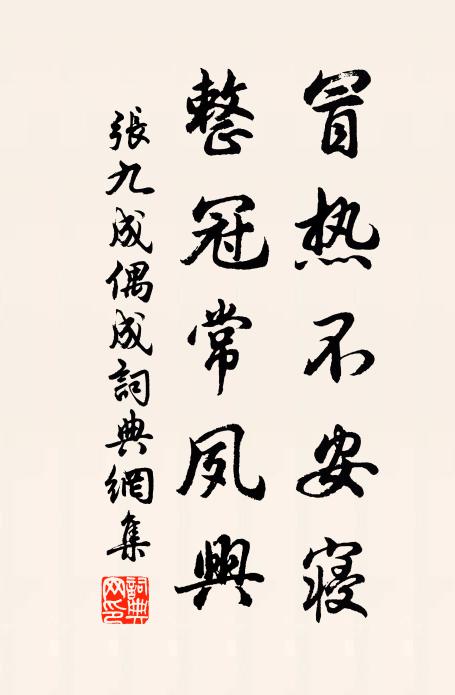 冒热不安寝
整冠常夙興
張九成偶成詞典網集
詞典网印